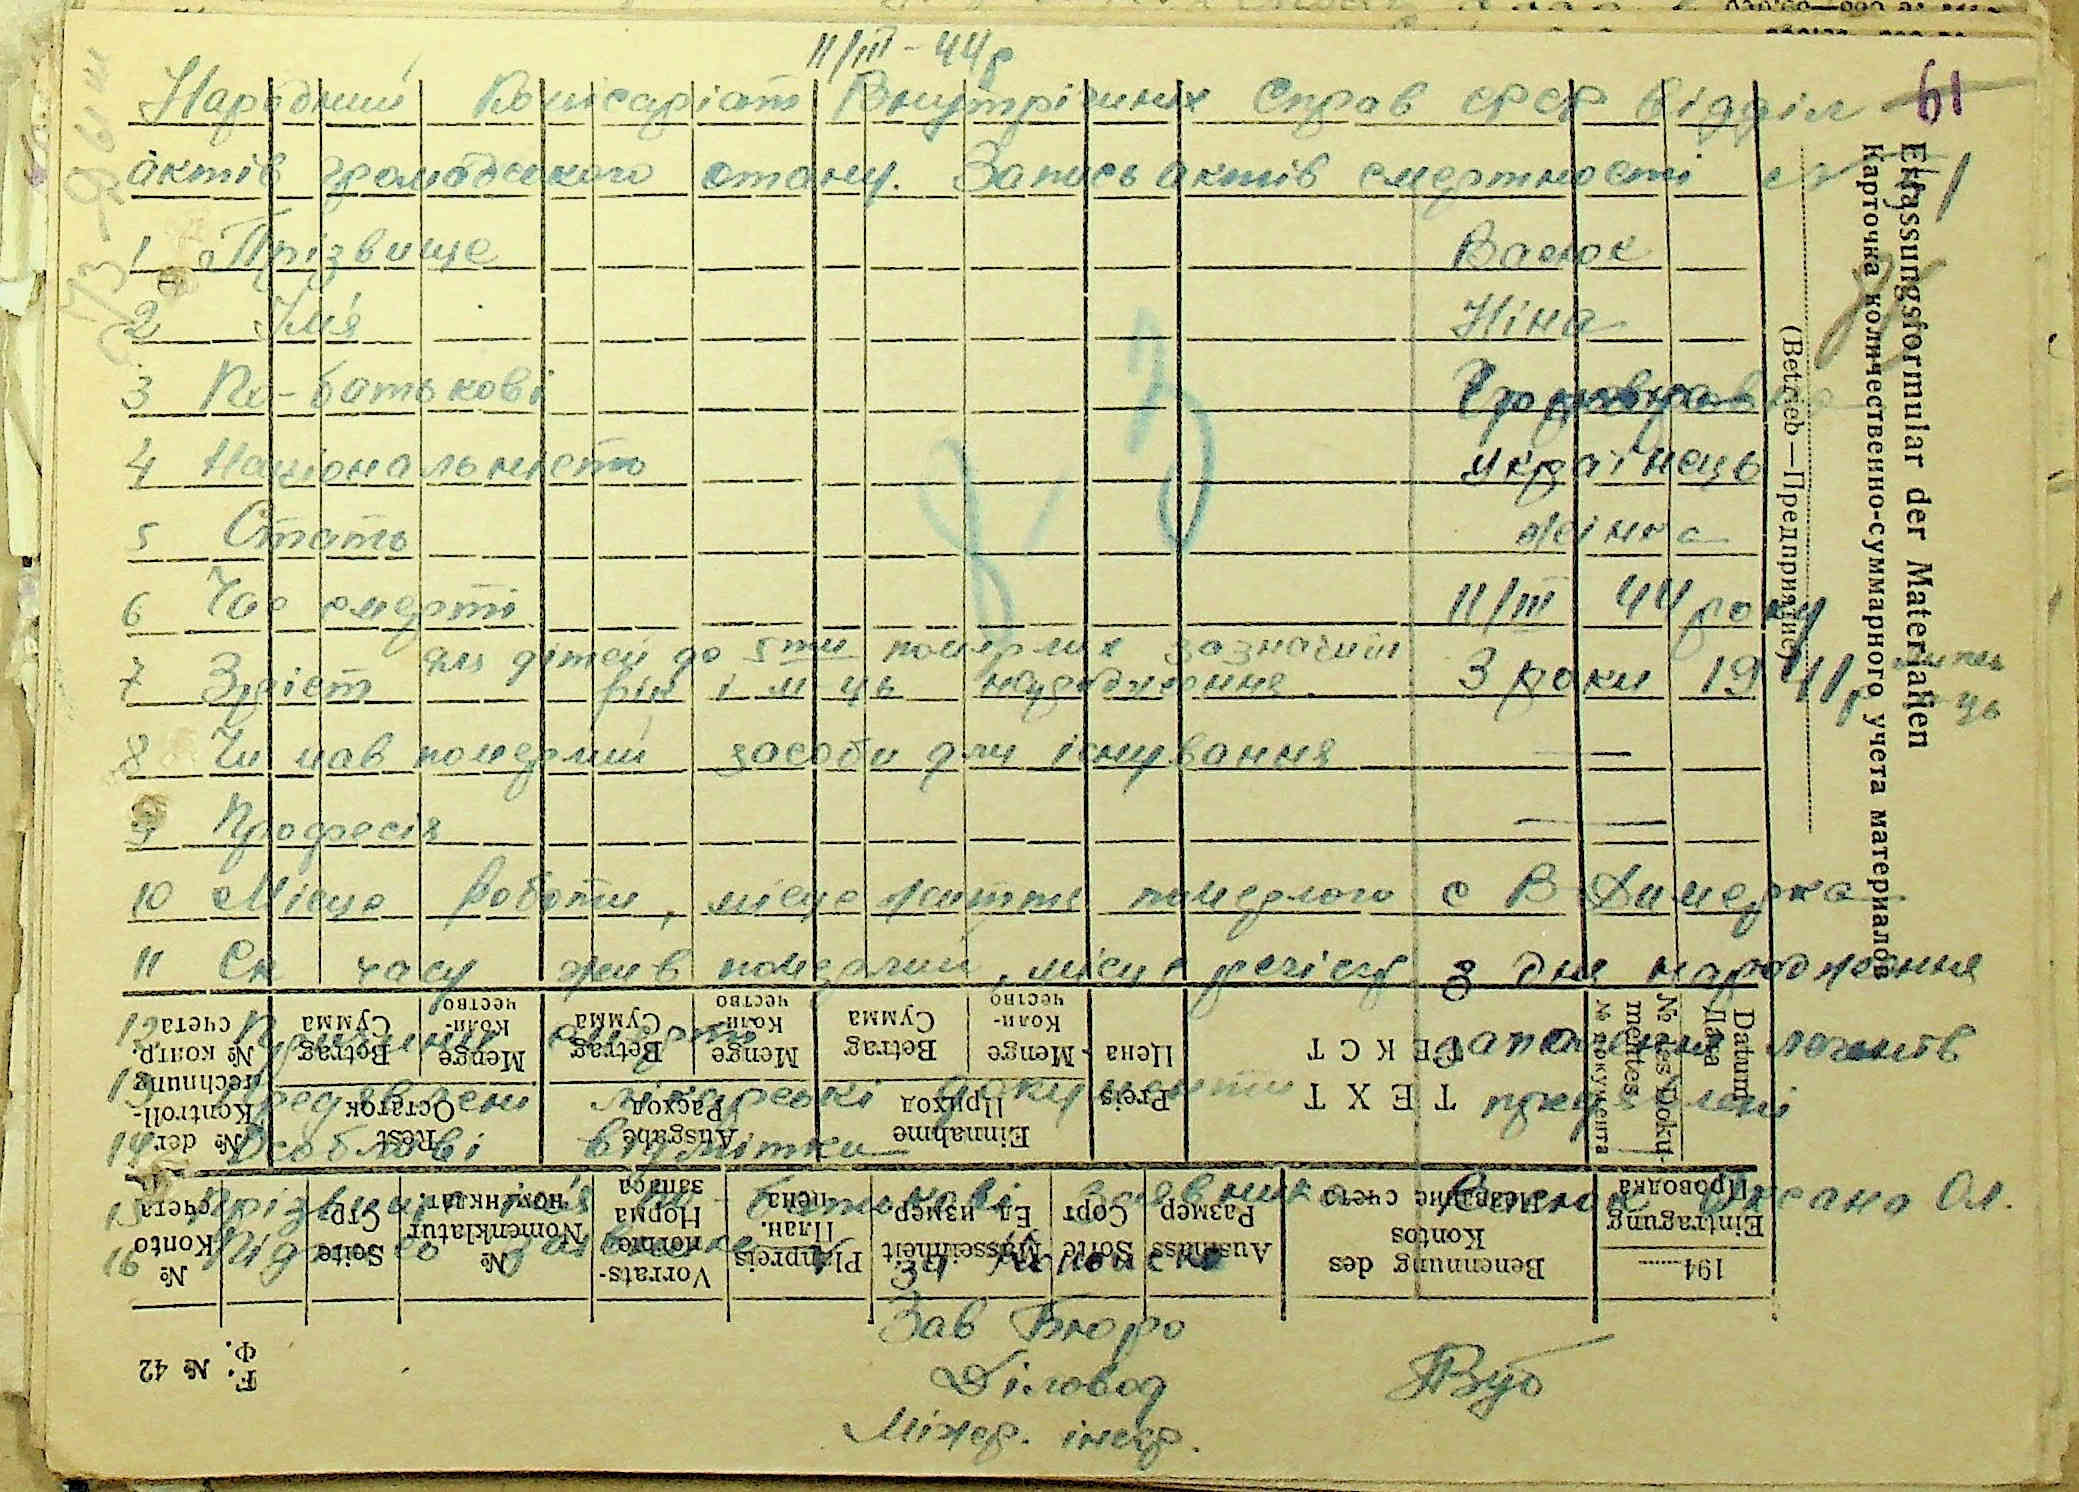 11/III - 44 р
61
Народний Комісаріат Внутрішних Справ СРСР відділ
актів громадського стану. Запись актів смертності
1 Прізвище Васюк
2 Ім'я Ніна
3 По-батькові
4 Національність українець
5 Стать жінка
6 Час смерті 11/III 44 року
для дітей до 5ти померлих зазначит
7 Зріст рік і м-ць народження. 3 роки 1941р
8 Чи мав померлий засоби для існування —
9 Професія —
10 Місце роботи, місце життя померлого с В Димерка
11 Ск часу жив померлий, місце з дня народження
12 Причини смерті запалення легенів
13 Предявлені лікарські документи
14 Особливі відмітки —
15 Прізвище ім'я по-батькові заявника Васюк Оксана Ол.
16 Підпис заявника
Зав Бюро
Діловод
Erfassungsformular der Materialien
Карточка количественно-суммарного учета материалов
(Betrieb—Предприятие)
Datum Дата
№ des Dokumentes № документа
TEXT ТЕКСТ
Preis Цена
Einnahme Приход
Menge Количество
Betrag Сумма
Ausgabe Расход
Menge Количество
Betrag Сумма
Rest Остаток
Menge Количество
Betrag Сумма
№ der Kontrollrechnung № контр. счета
194
Eintragung Проводка
Benennung des Kontos Название счета
Ausmass Размер
Sorte Сорт
Masseinheit Ед. измер
Planpreis План. цена
Vorratsnorme Норма запаса
№ Nomenklatur
Seite Стр.
№ Konto счета
F. Ф. № 42